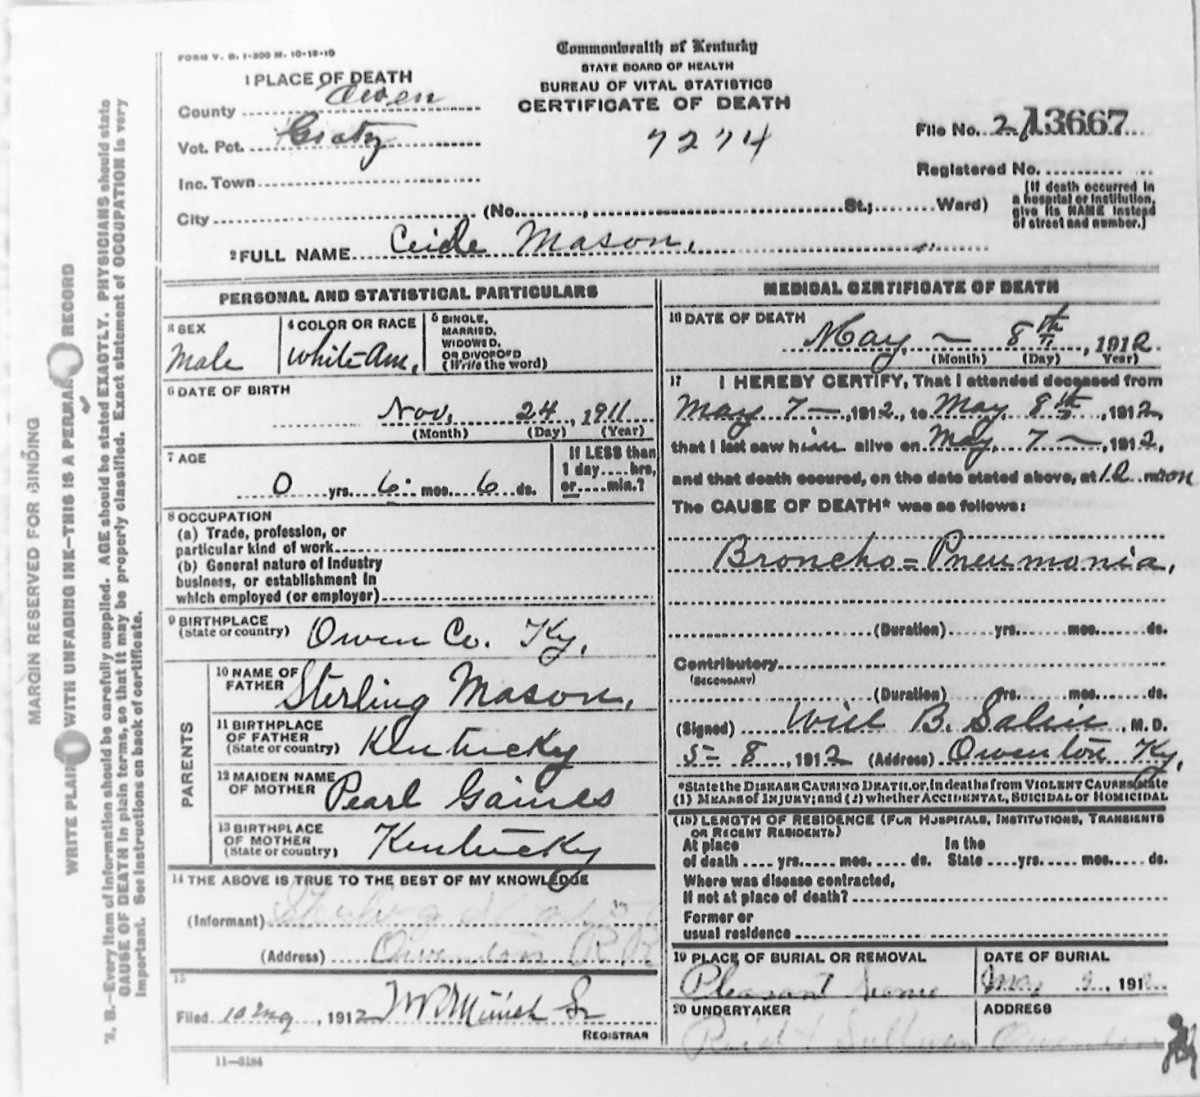 FORM V. S. 1-300 M. 10-18-10
Commonwealth of Kentucky
STATE BOARD OF HEALTH
BUREAU OF VITAL STATISTICS
CERTIFICATE OF DEATH
7274
1 PLACE OF DEATH
County Owen
Vot. Pct. Gratz
Inc. Town
City (No. , St.; Ward)
File No. 13667
Registered No.
(If death occurred in
a hospital or institution,
give its NAME instead
of street and number.)
2 FULL NAME Mason,
PERSONAL AND STATISTICAL PARTICULARS
3 SEX
Male
4 COLOR OR RACE
White Am.
5 SINGLE,
MARRIED,
WIDOWED,
OR DIVORCED
(Write the word)
6 DATE OF BIRTH
Nov. 24, 1911
(Month) (Day) (Year)
7 AGE
0 yrs. 6 mos. 6 ds.
If LESS than
1 day....hrs.
or....min.?
8 OCCUPATION
(a) Trade, profession, or
particular kind of work
(b) General nature of Industry
business, or establishment in
which employed (or employer)
9 BIRTHPLACE
(State or country)
Owen Co. Ky,
PARENTS
10 NAME OF
FATHER
Sterling Mason,
11 BIRTHPLACE
OF FATHER
(State or country)
Kentucky
12 MAIDEN NAME
OF MOTHER
Pearl Gaines
13 BIRTHPLACE
OF MOTHER
(State or country)
Kentucky
14 THE ABOVE IS TRUE TO THE BEST OF MY KNOWLEDGE
(Informant)
(Address) Owenton R.R
15
Filed 10 , 1912
REGISTRAR
11—3184
MEDICAL CERTIFICATE OF DEATH
16 DATE OF DEATH
May 8th, 1912
(Month) (Day) (Year)
17 I HEREBY CERTIFY, That I attended deceased from
May 7, 1912, to May 8th, 1912,
that I last saw him alive on May 7, 1912,
and that death occured, on the date stated above, at
The CAUSE OF DEATH* was as follows:
Broncho=Pneumonia,
(Duration) yrs. mos. ds.
Contributory
(SECONDARY)
(Duration) yrs. mos. ds.
(Signed) B. M. D.
5-8, 1912 (Address) Owenton Ky,
*State the DISEASE CAUSING DEATH, or, in deaths from VIOLENT CAUSES, state
(1) MEANS of INJURY; and (2) whether ACCIDENTAL, SUICIDAL or HOMICIDAL
(18) LENGTH OF RESIDENCE (FOR HOSPITALS, INSTITUTIONS, TRANSIENTS
OR RECENT RESIDENTS)
At place
of death .... yrs. .... mos. .... ds.
In the
State .... yrs. .... mos. .... ds.
Where was disease contracted,
if not at place of death?
Former or
usual residence
19 PLACE OF BURIAL OR REMOVAL
Pleasant
DATE OF BURIAL
May 9, 191
20 UNDERTAKER
Sullivan
ADDRESS
MARGIN RESERVED FOR BINDING
WRITE PLAIN WITH UNFADING INK—THIS IS A PERMA RECORD
N. B.—Every item of information should be carefully supplied. AGE should be stated EXACTLY. PHYSICIANS should state
CAUSE OF DEATH in plain terms, so that it may be properly classified. Exact statement of OCCUPATION is very
important. See instructions on back of certificate.